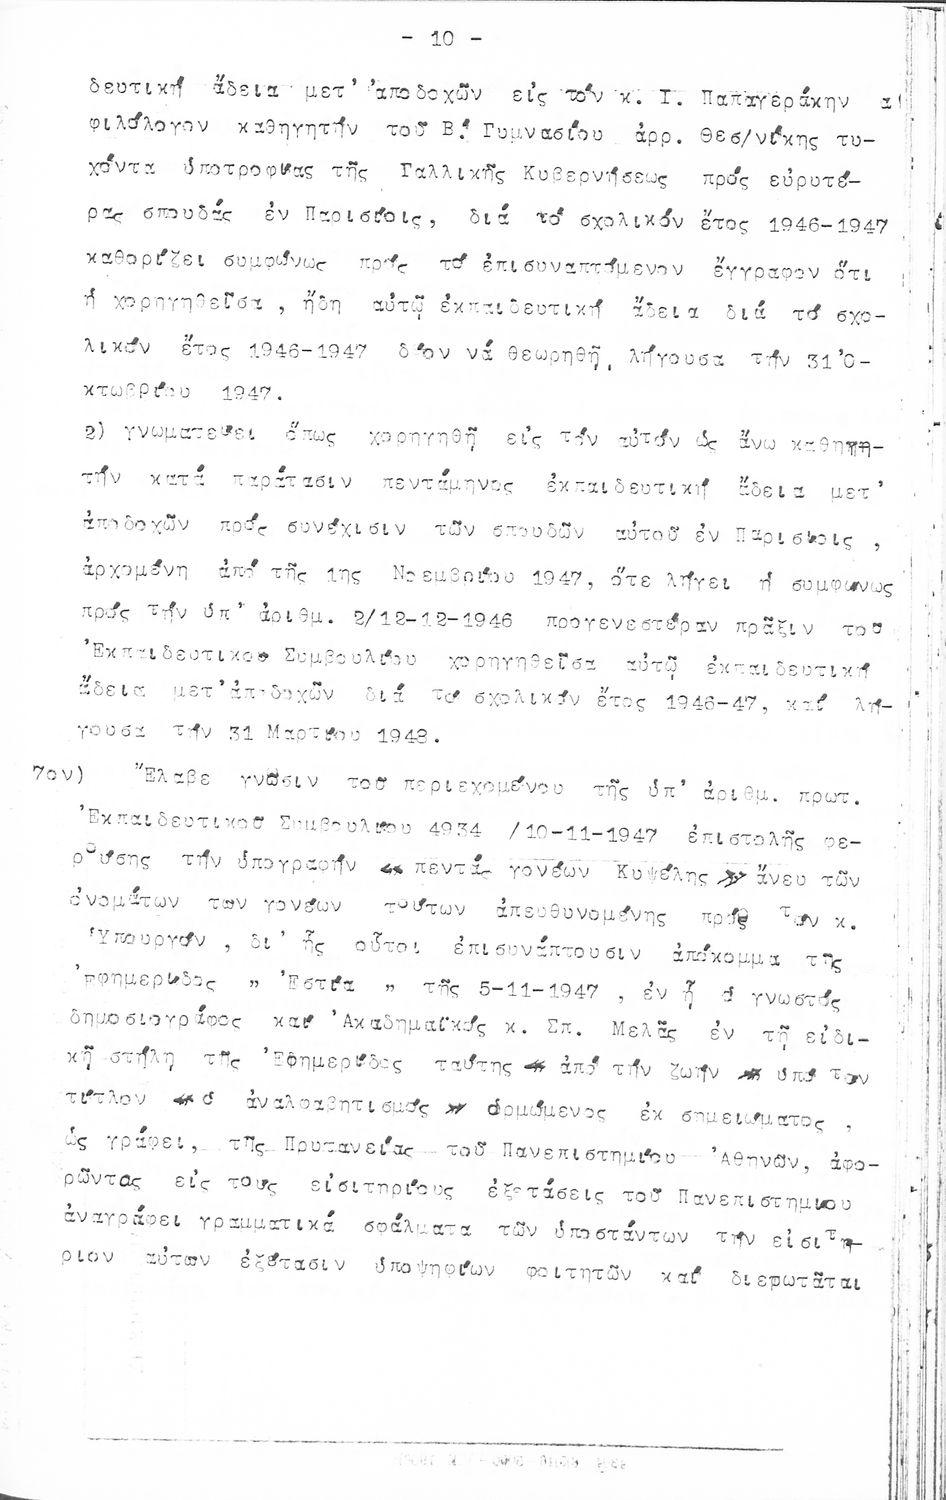 - 10 -
δευτική ἄδεια μετ' ἀποδοχῶν εἰς τόν κ. Ι. Παπαγεράκην
φιλόλογον καθηγητήν τοῦ Β! Γυμνασίου ἀρρ. Θεσ/νίκης τυ-
χόντα ὑποτροφίας τῆς Γαλλικῆς Κυβερνήσεως πρός εὐρυτέ-
ρας σπουδάς ἐν Παρισίοις, διά τό σχολικόν ἔτος 1946-1947
καθορίζει συμφώνως πρός τό ἐπισυναπτόμενον ἔγγραφον ὅτι
ἡ χορηγηθεῖσα , ἤδη αὐτῷ ἐκπαιδευτική ἄδεια διά τό σχο-
λικόν ἔτος 1946-1947 δέον νά θεωρηθῇ, λήγουσα τήν 31 Ὀ-
κτωβρίου 1947.
2) γνωματεύει ὅπως χορηγηθῇ εἰς τόν αὐτόν ὡς ἄνω καθηγη-
τήν κατά παράτασιν πεντάμηνος ἐκπαιδευτική ἄδεια μετ'
ἀποδοχῶν πρός συνέχισιν τῶν σπουδῶν αὐτοῦ ἐν Παρισίοις ,
ἀρχομένη ἀπό τῆς 1ης Νοεμβρίου 1947, ὅτε λήγει ἡ συμφωνως
πρός τήν ὑπ' ἀριθμ. 2/12-12-1946 προγενεστέραν πρᾶξιν τοῦ
Ἐκπαιδευτικοῦ Συμβουλίου χορηγηθεῖσα αὐτῷ ἐκπαιδευτική
ἄδεια μετ' ἀποδοχῶν διά τό σχολικόν ἔτος 1946-47, καί λή-
γουσα τήν 31 Μαρτίου 1948.
7ον) Ἔλαβε γνῶσιν τοῦ περιεχομένου τῆς ὑπ' ἀριθμ. πρωτ.
Ἐκπαιδευτικοῦ Συμβουλίου 4934 /10-11-1947 ἐπιστολῆς φε-
ρούσης τήν ὑπογραφήν « πεντάς γονέων Κυψέλης » ἄνευ τῶν
ὀνομάτων των γονέων τούτων ἀπευθυνομένης πρός τον κ.
Ὑπουργόν , δι' ἧς οὗτοι ἐπισυνάπτουσιν ἀπόκομμα τῆς
Ἐφημερίδος " Ἑστία " τῆς 5-11-1947 , ἐν ᾗ ὁ γνωστός
δημοσιογράφος καί Ἀκαδημαϊκός κ. Σπ. Μελᾶς ἐν τῇ εἰδι-
κῇ στήλῃ τῆς Ἐφημερίδος ταύτης « ἀπό τήν ζωήν » ὑπό τον
τίτλον « ὁ ἀναλφαβητισμός » ὁρμώμενος ἐκ σημειώματος ,
ὡς γράφει, τῆς Πρυτανείας τοῦ Πανεπιστημίου Ἀθηνῶν, ἀφο-
ρῶντος εἰς τους εἰσιτηρίους ἐξετάσεις τοῦ Πανεπιστημιου
ἀναγράφει γραμματικά σφάλματα τῶν ὑποστάντων τήν εἰσιτή-
ριον αὐτων ἐξέτασιν ὑποψηφίων φοιτητῶν καί διερωτᾶται